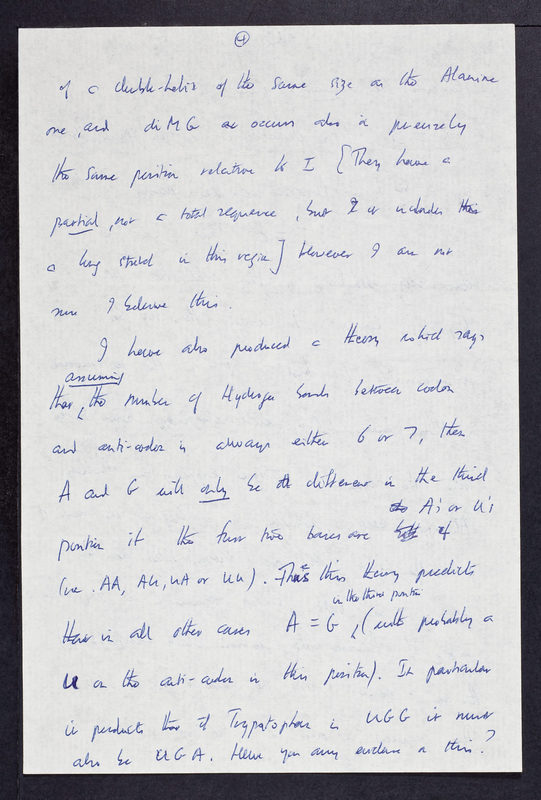 4
of a double-helix of the same size as the Alanine
one, and diMG occurs also in precisely
the same position relative to I [They have a
partial, not a total sequence, but it includes this
a long stretch in this region] However I am not
sure I believe this.
I have also produced a theory which says
assuming
that the number of Hydrogen bonds between codon
and anti-codon is always either 6 or 7, then
A and G will only be different in the third
A's or U's
position if the first two bases are
(ie. AA, AU, UA or UU). Thus this theory predicts
in the third position
that in all other cases A = G, (with probably a
U on the anti-codon in this position). In particular
it predicts that if Tryptophan is UGG it must
also be UGA. Have you any evidence on this?